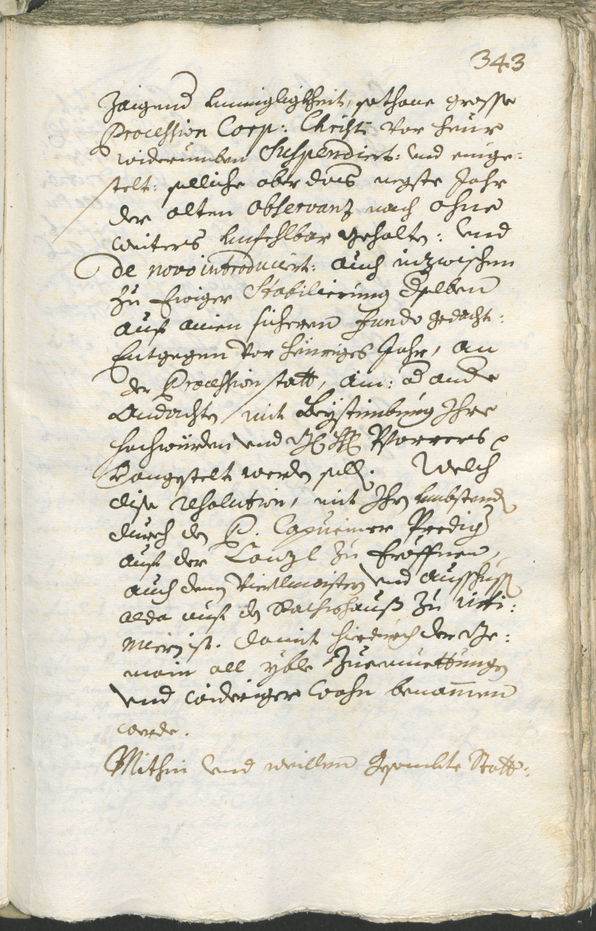 343
Zaigend km̄iglichkheit, sothane grosse
Procession Corp: Christi vor heur
widerumben Suspendirt: und einge:
stelt: solliche aber das negste Jahr
der alten Observanz nach ohne
weiters unfehlbar gehalten: und
De novo introducirt: auch inzwischen
zu Ewiger Stabilierung derselben
auf ainen sicheren fundo gedacht:
Entgegen vor heuriges Jahr, an
der Procession statt, ain: od ande
Andachte, mit Beystimbung Ihre
hochwürden und H: H: Pfarrers
angestelt werden soll. Welch
dise resolution, mit Ihren umbstend
durch den P. Capuciner Predig
auf der Canzl zu Eröffnen,
auch denen Viertlmaistern und Ausschuss
alda auf den Rathshauß zu inti:
miern ist. damit hierdurch der Ge:
main all yble Zuemuettungen
und widriger wohn benommen
werde.
Mithin und weillen gesambte Statt: